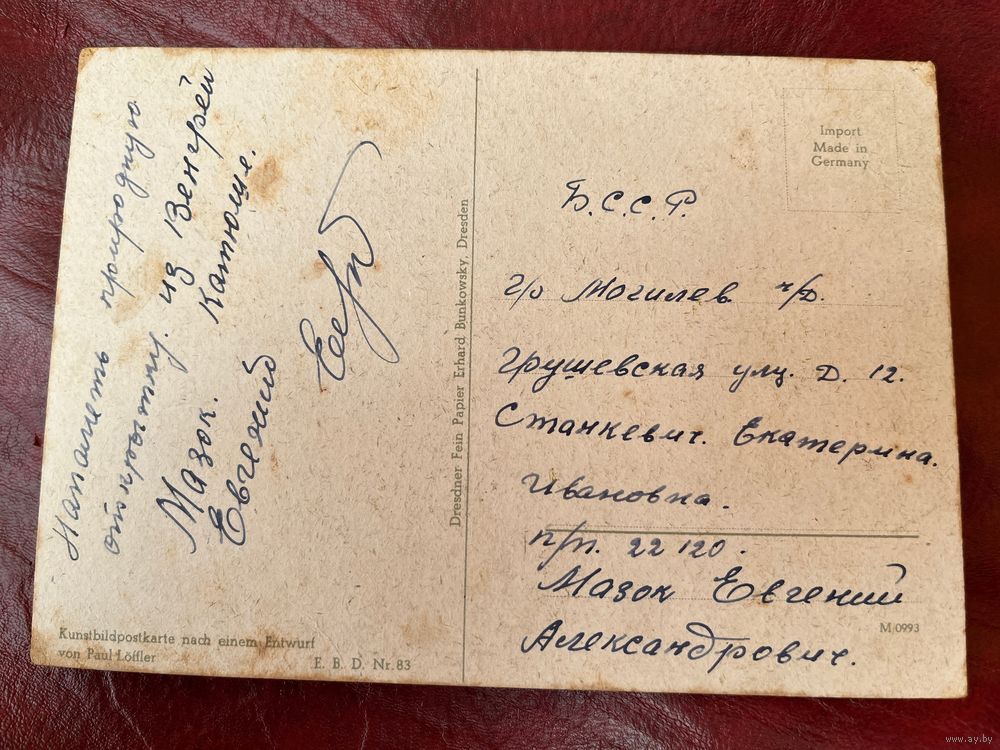 Напаметь природную
открытку. из Венгрей
Мазок. Катюше.
Евгений
Import
Made in
Germany
Б.С.С.Р.
г/о Могилев ч/д.
Грушевская улц. Д. 12.
Станкевич. Екатерина.
Ивановна.
п/п. 22120.
Мазок Евгений
Александрович.
Dresdner Fein Papier Erhard Bunkowsky, Dresden
Kunstbildpostkarte nach einem Entwurf
von Paul Löffler
E. B. D. Nr. 83
M/0993
www.ay.by